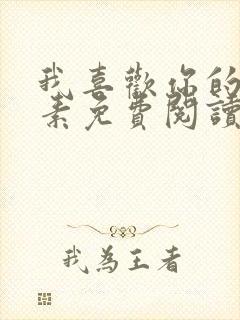 我喜歡你的
素免費閱讀
我為王者